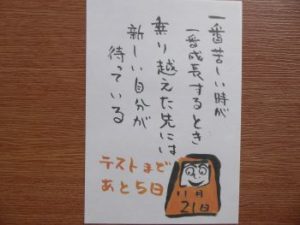 一番苦しい時が
一番成長するとき
乗り越えた先には
新しい自分が
待っている
テストまで
あと5日
11月
21日